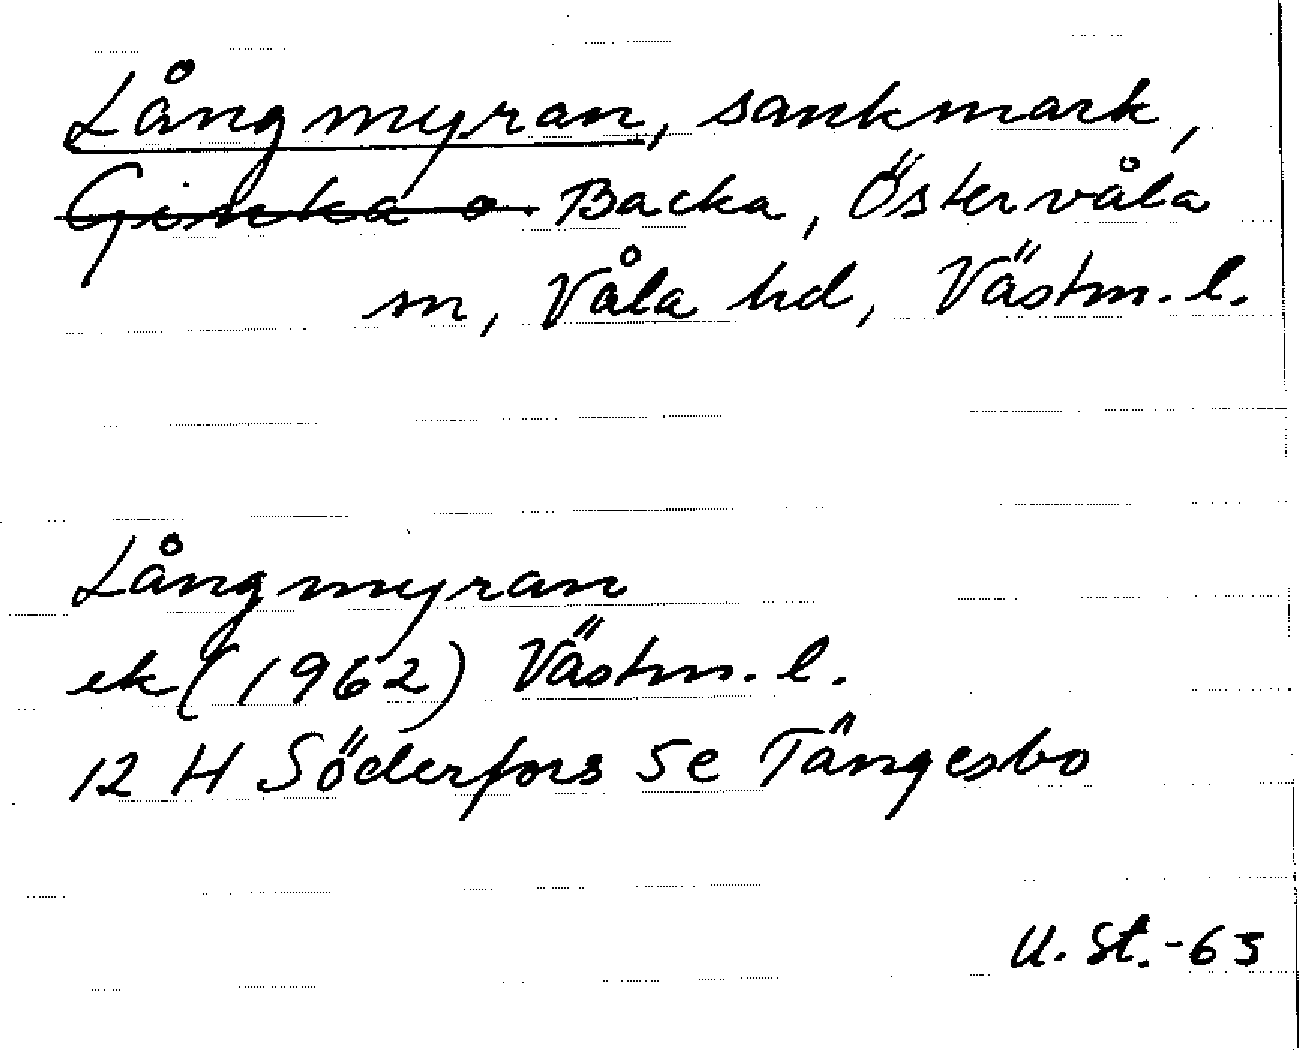 Långmyran, sankmark,
Ginka o. Backa, Östervåla
sn, Våla hd, Västm. l.
Långmyran
ek (1962) Västm. l.
12 H Söderfors 5e Tängesbo
U. St. -63